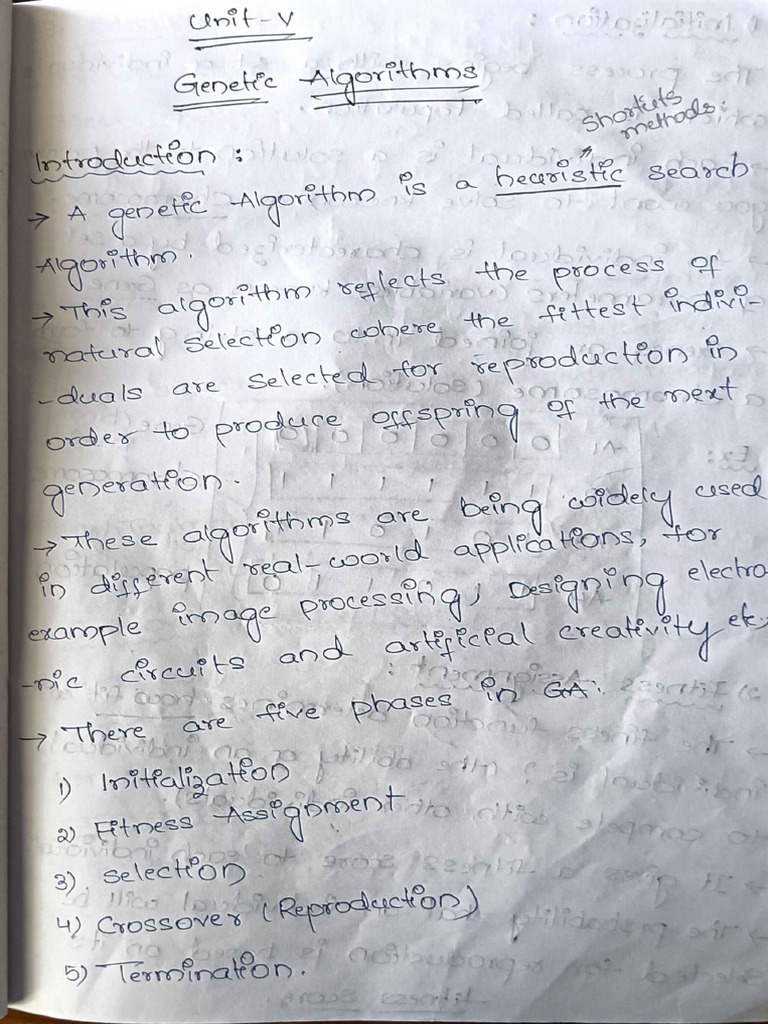 Unit-V
Genetic Algorithms
shortcuts
methods:
Introduction :
→ A genetic Algorithm is a heuristic search
Algorithm.
→ This algorithm reflects the process of
natural selection where the fittest indivi-
-duals are selected for reproduction in
order to produce offspring of the next
generation.
→ These algorithms are being widely used
in different real-world applications, for
example image processing, Designing electro
-nic circuits and artificial creativity etc,
→ There are five phases in GA:
1) Initialization
2) Fitness Assignment
3) Selection
4) Crossover (Reproduction)
5) Termination.